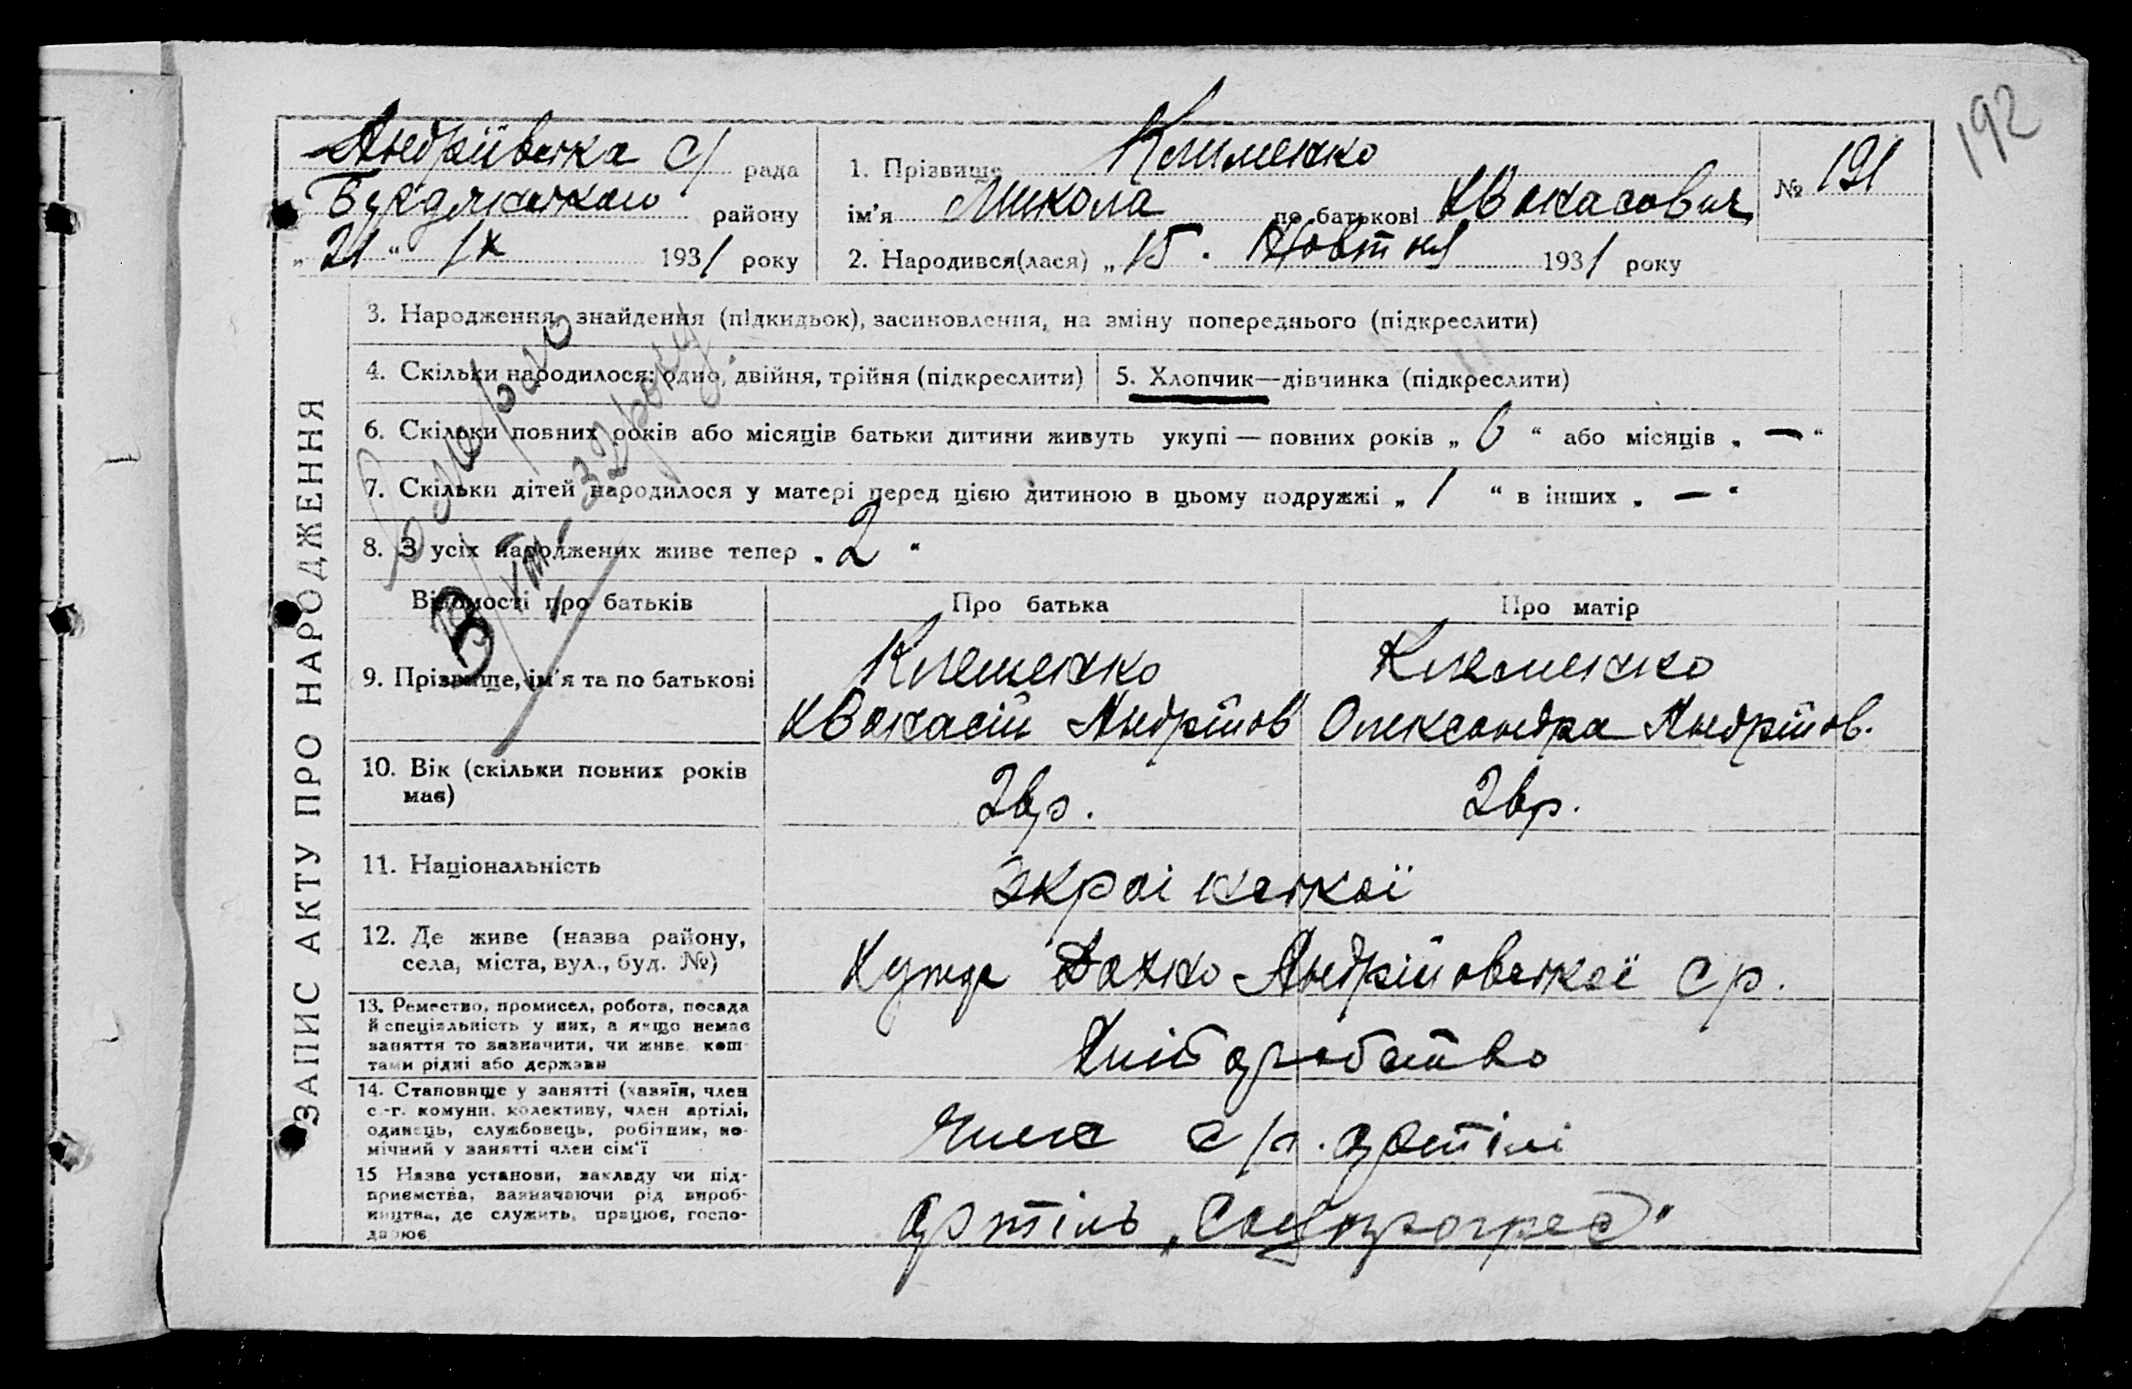 192
Андріївська с/ рада
районy
„21“ IX 1931 року
1. Прізвище Клименко
ім'я Микола по батькові
2. Народився(лася) „15. Жовтня 1931 року
№ 191
ЗАПИС АКТУ ПРО НАРОДЖЕННЯ
3. Народження, знайдення (підкидьок), засиновлення, на зміну попереднього (підкреслити)
4. Скільки народилося: одно, двійня, трійня (підкреслити)
5. Хлопчик—дівчинка (підкреслити)
6. Скільки повних років або місяців батьки дитини живуть укупі — повних років „ 6 “ або місяців „ — “
7. Скільки дітей народилося у матері перед цією дитиною в цьому подружжі „ 1 “ в інших „ — “
8. З усіх народжених живе тепер „ 2 “
32 року.
Відомості про батьків
Про батька
Про матір
9. Прізвище, ім'я та по батькові
Клеменко
Андрійов
Клеменко
Олександра Андрійов.
10. Вік (скільки повних років
має)
26р.
26р.
11. Національність
Украінської
12. Де живе (назва району,
села, міста, вул., буд. №)
Андрійовської с р.
13. Ремество, промисел, робота, посада
й спеціяльність у них, а якщо немає
заняття то зазначити, чи живе кош-
тами рідні або держави
Хліборобство
14. Становище у занятті (хазяїн, член
с.-г. комуни, колективу, член артілі,
одинець, службовець, робітник, по-
мічний у занятті член сім'ї
член с/г. артілі
15 Назва установи, закладу чи під-
приємства, зазначаючи рід вироб-
ництва, де служить, працює, госпо-
дарює
артіль „Соцпрогрес“